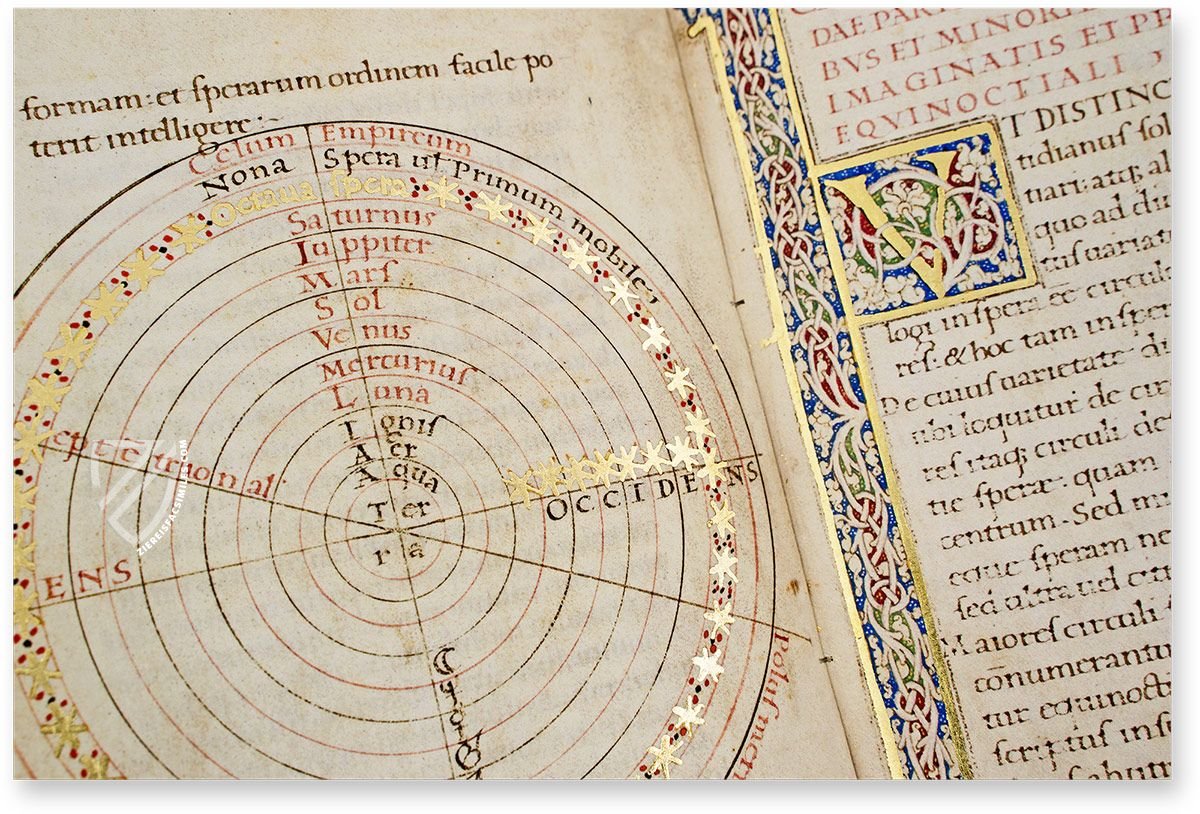 formam: et sperarum ordinem facile po
terit intelligere:~
Celum Empireum
Nona Spera uel Primum mobile
Octaua spera
Saturnus
Iuppiter
Mars
Sol
Venus
Mercurius
Luna
Ignis
Aer
Aqua
Ter
ra
eptetrional
OCCIDENS
ENS
Polus
ZIEREISFACSIMILES.COM
DAE PAR
BVS ET MINORI
IMAGINATIS ET PE
EQVINOCTIALI
VT DISTINC
tidianus sol
quo ad diu
tus uariat
logi in spera. ee circula
res. & hoc tam in sper
De cuius uarietate. di
ubi loquitur de circ
res itaq; circuli de
tie speræ. quam
centrum. Sed mi
eque speram ne
sed ultra uel citr
Maiores circuli
cōnumerantu
tur equinocti
scriptus ins